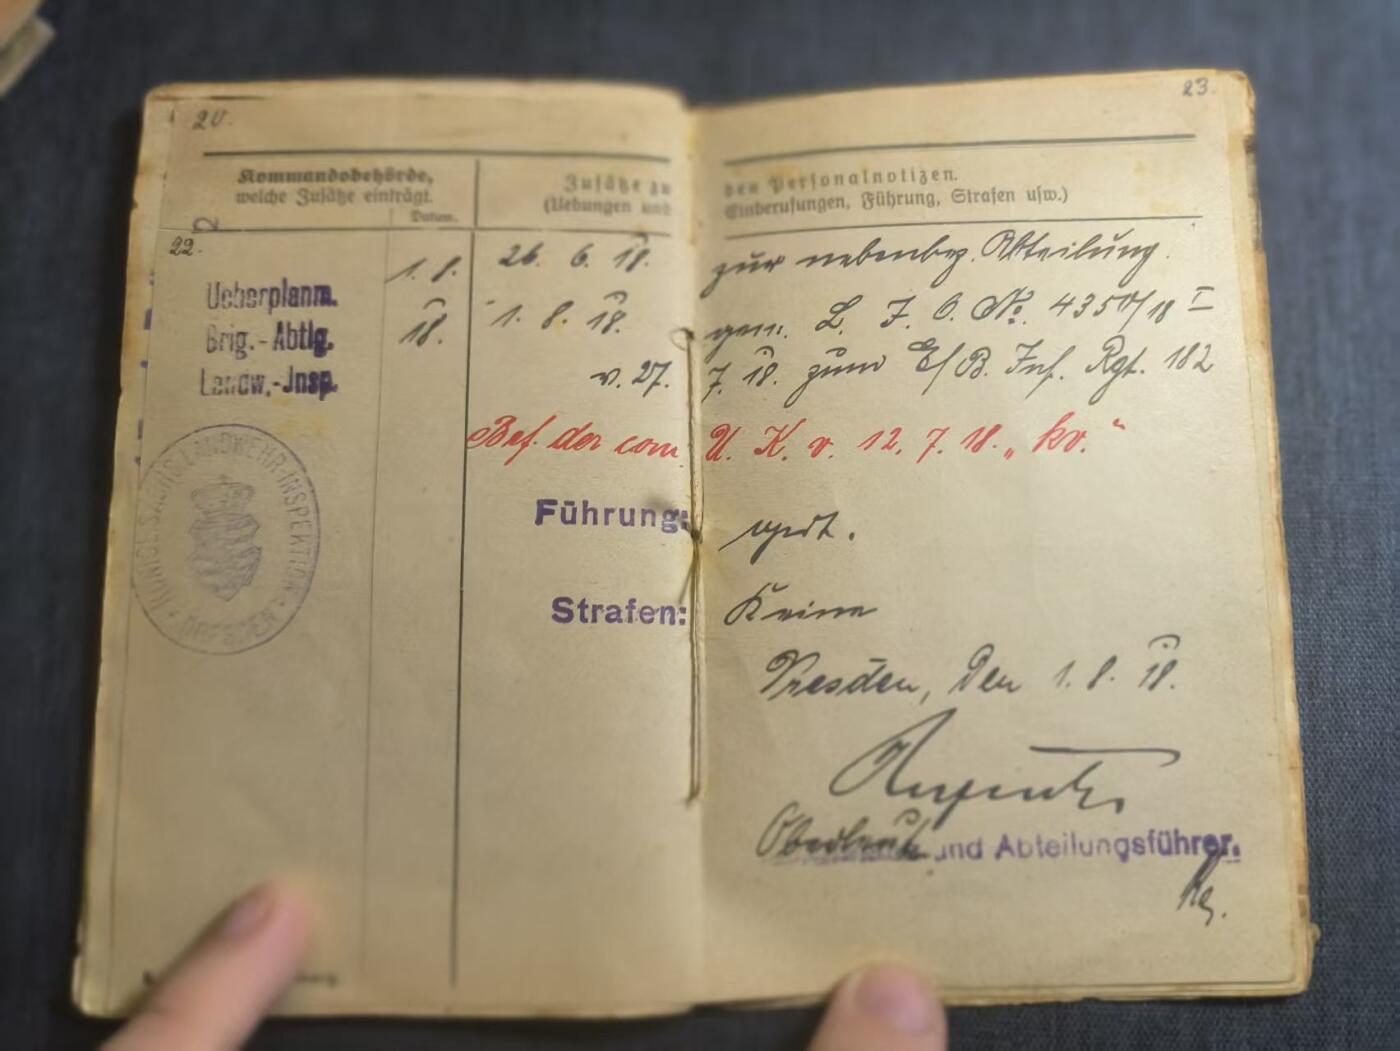 20.
23.
Kommandobehörde,
welche Zusätze einträgt.
Datum.
Zusätze zu den Personalnotizen.
(Uebungen und Einberufungen, Führung, Strafen usw.)
22.
Ueberplanm.
Brig.-Abtlg.
Landw.-Jnsp.
1. 8.
18.
26. 6. 18. zur nebenbez. Abteilung.
1. 8. 18. gem. L. J. O. No. 4350/18 I
v. 27. 7. 18. zum E/B. Inf. Rgt. 182
Bef. der com. U. K. v. 12. 7. 18. „kv."
KÖNIGL. SÄCHS. LANDWEHR-INSPEKTION DRESDEN
Führung: gut.
Strafen: Keine
Dresden, den 1. 8. 18.
Oberleut. und Abteilungsführer.